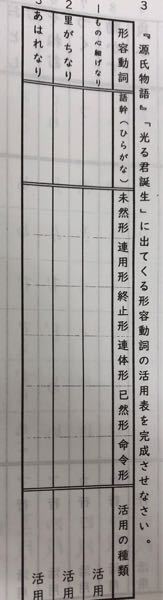 ３ 『源氏物語』「光る君誕生」に出てくる形容動詞の活用表を完成させなさい。
形容動詞 語幹（ひらがな） 未然形 連用形 終止形 連体形 已然形 命令形 活用の種類
１ もの心細げなり 活用
２ 里がちなり 活用
３ あはれなり 活用